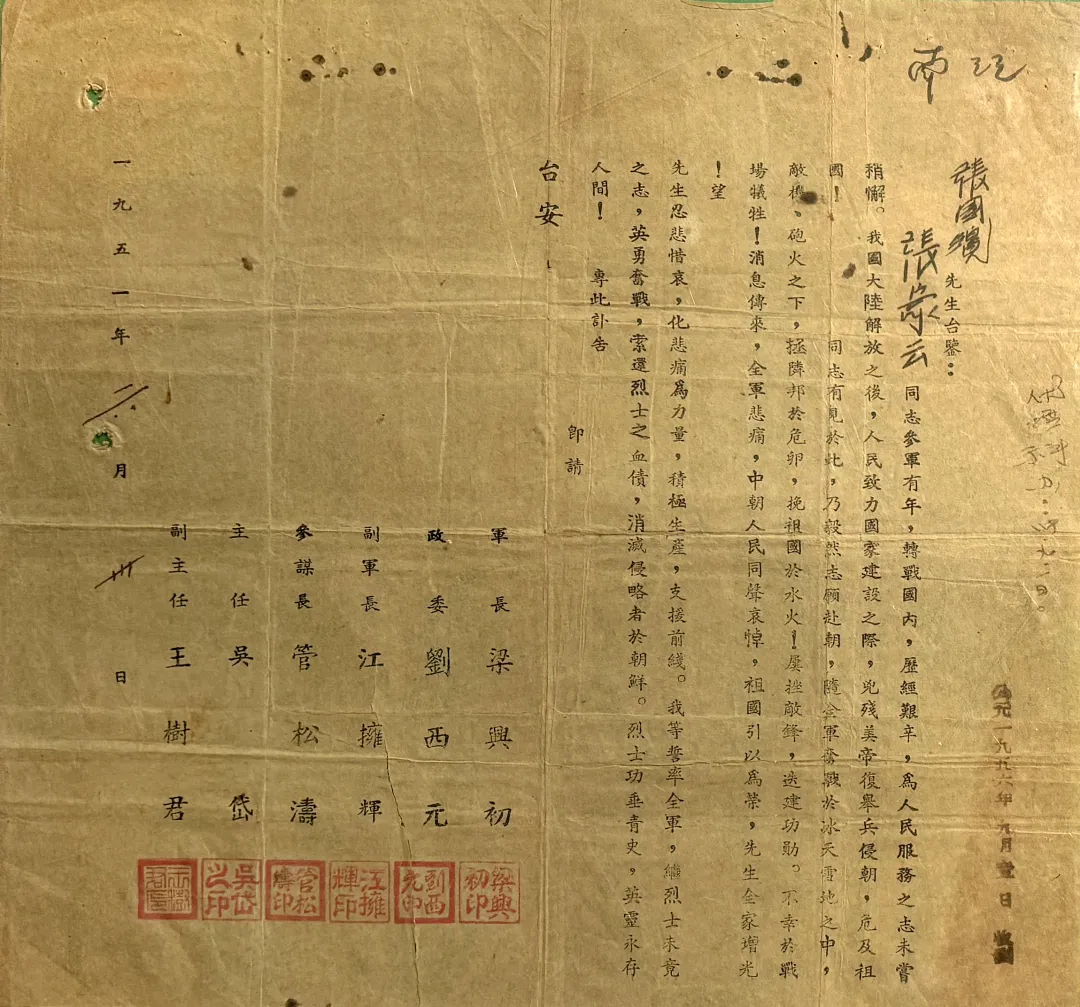 張國瀕
先生台鑒：
張象云
同志參軍有年，轉戰國內，歷經艱辛，為人民服務之志未嘗
稍懈。我國大陸解放之後，人民致力國家建設之際，兇殘美帝復舉兵侵朝，危及祖
國！同志有見於此，乃毅然志願赴朝，隨全軍奮戰於冰天雪地之中，
敵機、砲火之下，拯隣邦於危卵，挽祖國於水火！屢挫敵鋒，迭建功勛。不幸於戰
場犧牲！消息傳來，全軍悲痛，中朝人民同聲哀悼，祖國引以為榮，先生全家增光
！望
先生忍悲惜哀，化悲痛為力量，積極生產，支援前綫。我等誓率全軍，繼烈士未竟
之志，英勇奮戰，索還烈士之血債，消滅侵略者於朝鮮。烈士功垂青史，英靈永存
人間！專此訃告
即請
台安
軍長梁興初
政委劉西元
副軍長江擁輝
參謀長管松濤
主任吳岱
副主任王樹君
一九五一年 月 日
公元一九九六年九月壹日
梁興初印
劉西元印
江擁輝印
管松濤印
吳岱之印